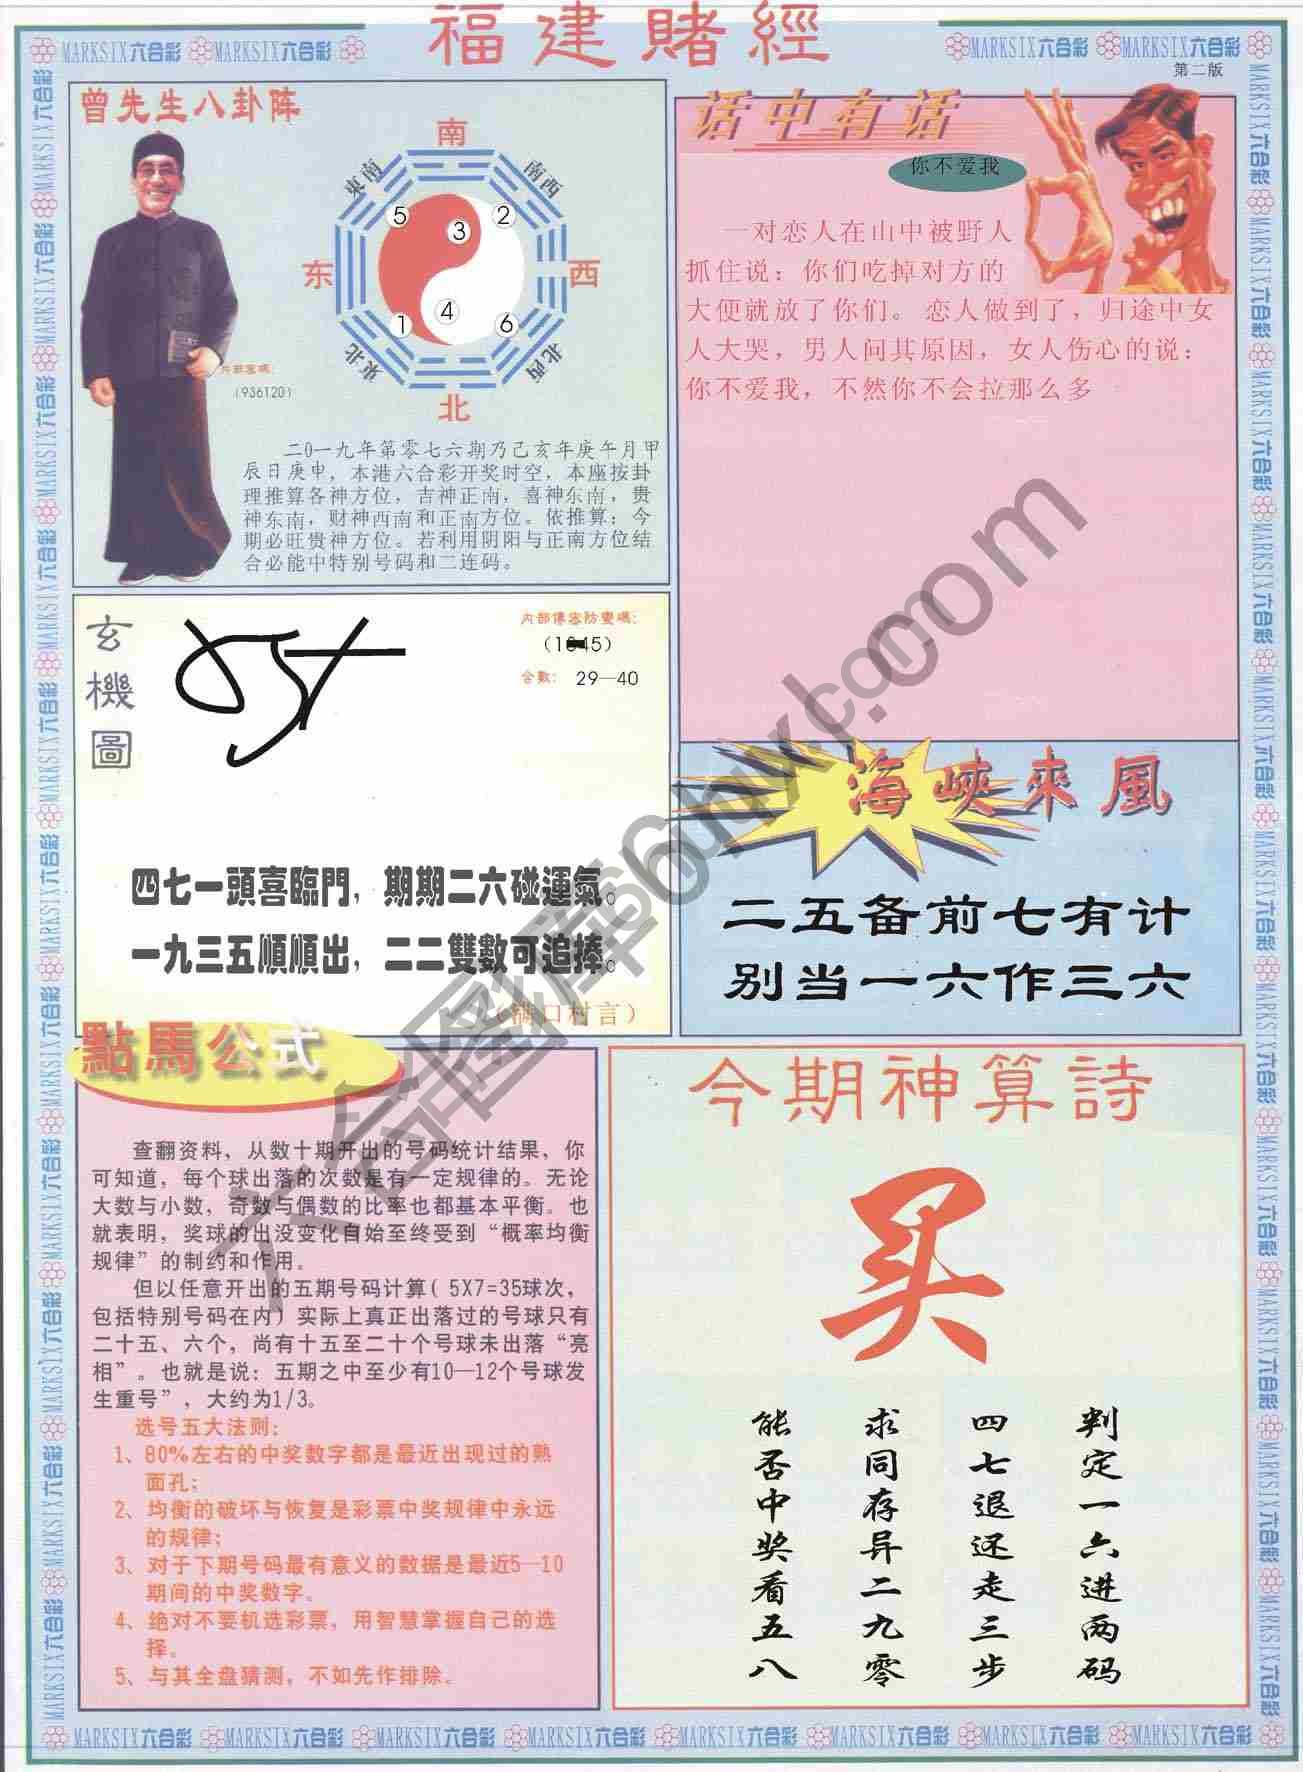 福建賭經
MARKSIX六合彩 MARKSIX六合彩
MARKSIX六合彩 MARKSIX六合彩
第二版
曾先生八卦阵
南
東南
南西
5
3
2
东
西
4
1
6
東北
北西
北
内部密碼：
（936120）
二〇一九年第零七六期乃己亥年庚午月甲
辰日庚申，本港六合彩开奖时空，本座按卦
理推算各神方位，吉神正南，喜神东南，贵
神东南，财神西南和正南方位。依推算：今
期必旺贵神方位。若利用阴阳与正南方位结
合必能中特别号码和二连码。
话中有话
你不爱我
一对恋人在山中被野人
抓住说：你们吃掉对方的
大便就放了你们。恋人做到了，归途中女
人大哭，男人问其原因，女人伤心的说：
你不爱我，不然你不会拉那么多
玄機圖
内部傳密防變碼：
合數： 29—40
四七一頭喜臨門，期期二六碰運氣。
一九三五順順出，二二雙數可追捧。
海峽來風
二五备前七有计
别当一六作三六
點馬公式
查翻资料，从数十期开出的号码统计结果，你
可知道，每个球出落的次数是有一定规律的。无论
大数与小数，奇数与偶数的比率也都基本平衡。也
就表明，奖球的出没变化自始至终受到“概率均衡
规律”的制约和作用。
但以任意开出的五期号码计算（5X7=35球次，
包括特别号码在内）实际上真正出落过的号球只有
二十五、六个，尚有十五至二十个号球未出落“亮
相”。也就是说：五期之中至少有10—12个号球发
生重号”，大约为1/3。
选号五大法则：
1、80%左右的中奖数字都是最近出现过的熟
面孔；
2、均衡的破坏与恢复是彩票中奖规律中永远
的规律；
3、对于下期号码最有意义的数据是最近5—10
期间的中奖数字。
4、绝对不要机选彩票，用智慧掌握自己的选
择。
5、与其全盘猜测，不如先作排除。
今期神算詩
买
判定一六进两码
四七退还走三步
求同存异二九零
能否中奖看五八